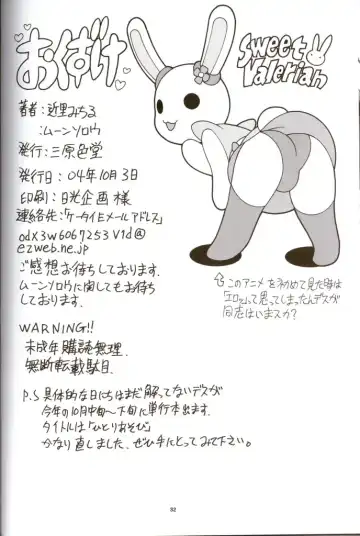 おくづけ
Sweet Valerian
著者:近里みちる
:ムーンソロウ
発行:三原色堂
発行日:04年10月3日
印刷:日光企画様
連絡先:「ケータイEメールアドレス」
odx3w6067253v1d@
ezweb.ne.jp
ご感想お待ちしております。
ムーンソロウに関してもお待ち
しております。
⇧このアニメを初めて見た時は
「エロッ」って思ってしまったんデスが
同志はいますか?
WARNING!!
未成年購読無理.
無断転載駄目.
P.S 具体的な日にちはまだ解ってないデスが
今年の10月中旬〜下旬に単行本出ます.
タイトルは「ひとりあそび」
かなり直しました、ぜひ手にとってみて下さい。
32